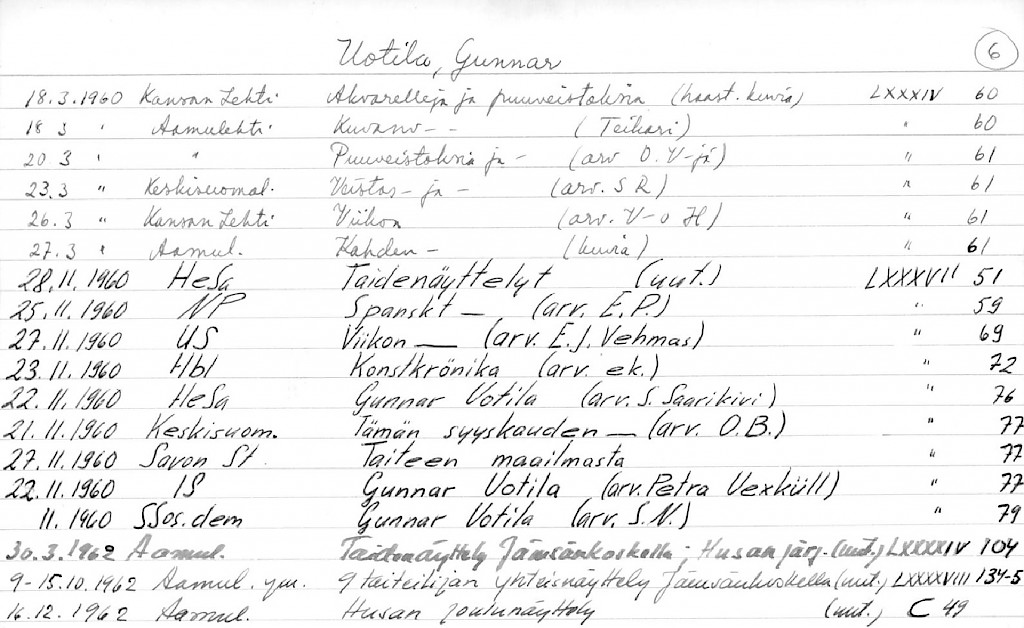 Uotila, Gunnar 6
18.3.1960 Kansan Lehti Akvarelleja ja puuveistoksia (haast. kuvia) LXXXIV 60
18 3 " Aamulehti Kuvanv- - (Teikari) " 60
20 3 " " Puuveistoksia ja - (arv O.V-jä) " 61
23.3 " Keskisuomal. Veistos- ja - (arv. S R) " 61
26.3 " Kansan Lehti Viikon (arv. V-o H) " 61
27.3 " Aamul. Kahden - (kuvia) " 61
28.11.1960 HeSa Taidenäyttelyt (uut.) LXXXVII 51
25.11.1960 NP Spanskt — (arv. E.P.) " 59
27.11.1960 US Viikon — (arv. E.J. Vehmas) " 69
23.11.1960 Hbl Konstkrönika (arv. ek.) " 72
22.11.1960 HeSa Gunnar Uotila (arv. S. Saarikivi) " 76
21.11.1960 Keskisuom. Tämän syyskauden — (arv. O.B.) " 77
27.11.1960 Savon S Taiteen maailmasta " 77
22.11.1960 IS Gunnar Uotila (arv. Petra Uexküll) " 77
11.1960 SSos.dem Gunnar Uotila (arv. S.N.) " 79
30.3.1962 Aamul. Taidenäyttely Jämsänkoskella; Husan järj. (uut.) LXXXXIV 104
9-15.10.1962 Aamul. ym. 9 taiteilijan yhteisnäyttely Jämsänkoskella (uut.) LXXXXVIII 134-5
16.12.1962 Aamul. Husan joulunäyttely (uut.) C 49